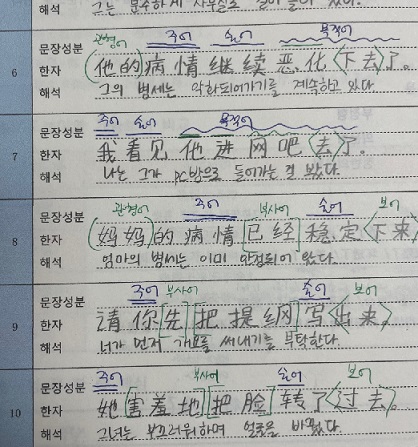 해석
관형어 주어 술어 목적어
문장성분
6 한자 (他的)病情继续恶化<下去>了。
해석 그의 병세는 악화되어가기를 계속하고 있다
주어 술어 목적어
문장성분
7 한자 我看见他进网吧<去>了。
해석 나는 그가 PC방으로 들어가는 걸 봤다.
문장성분 관형어 주어 부사어 술어 보어
8 한자 (妈妈)的病情[已经]稳定<下来
해석 엄마의 병세는 이미 안정되어 왔다.
문장성분 주어 부사어 술어 보어
9 한자 请你[先][把提纲]写<出来>
해석 너가 먼저 를 써내기를 부탁한다.
문장성분 주어 부사어 술어 보어
10 한자 她[害羞地][把脸]转了<过去>。
해석 그녀는 부끄러워하며 얼굴을